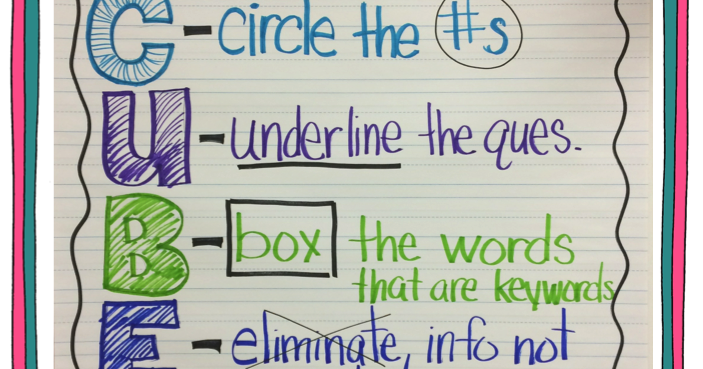 C - circle the #s
U - underline the ques.
B - box the words
that are keywords
E - eliminate, info not